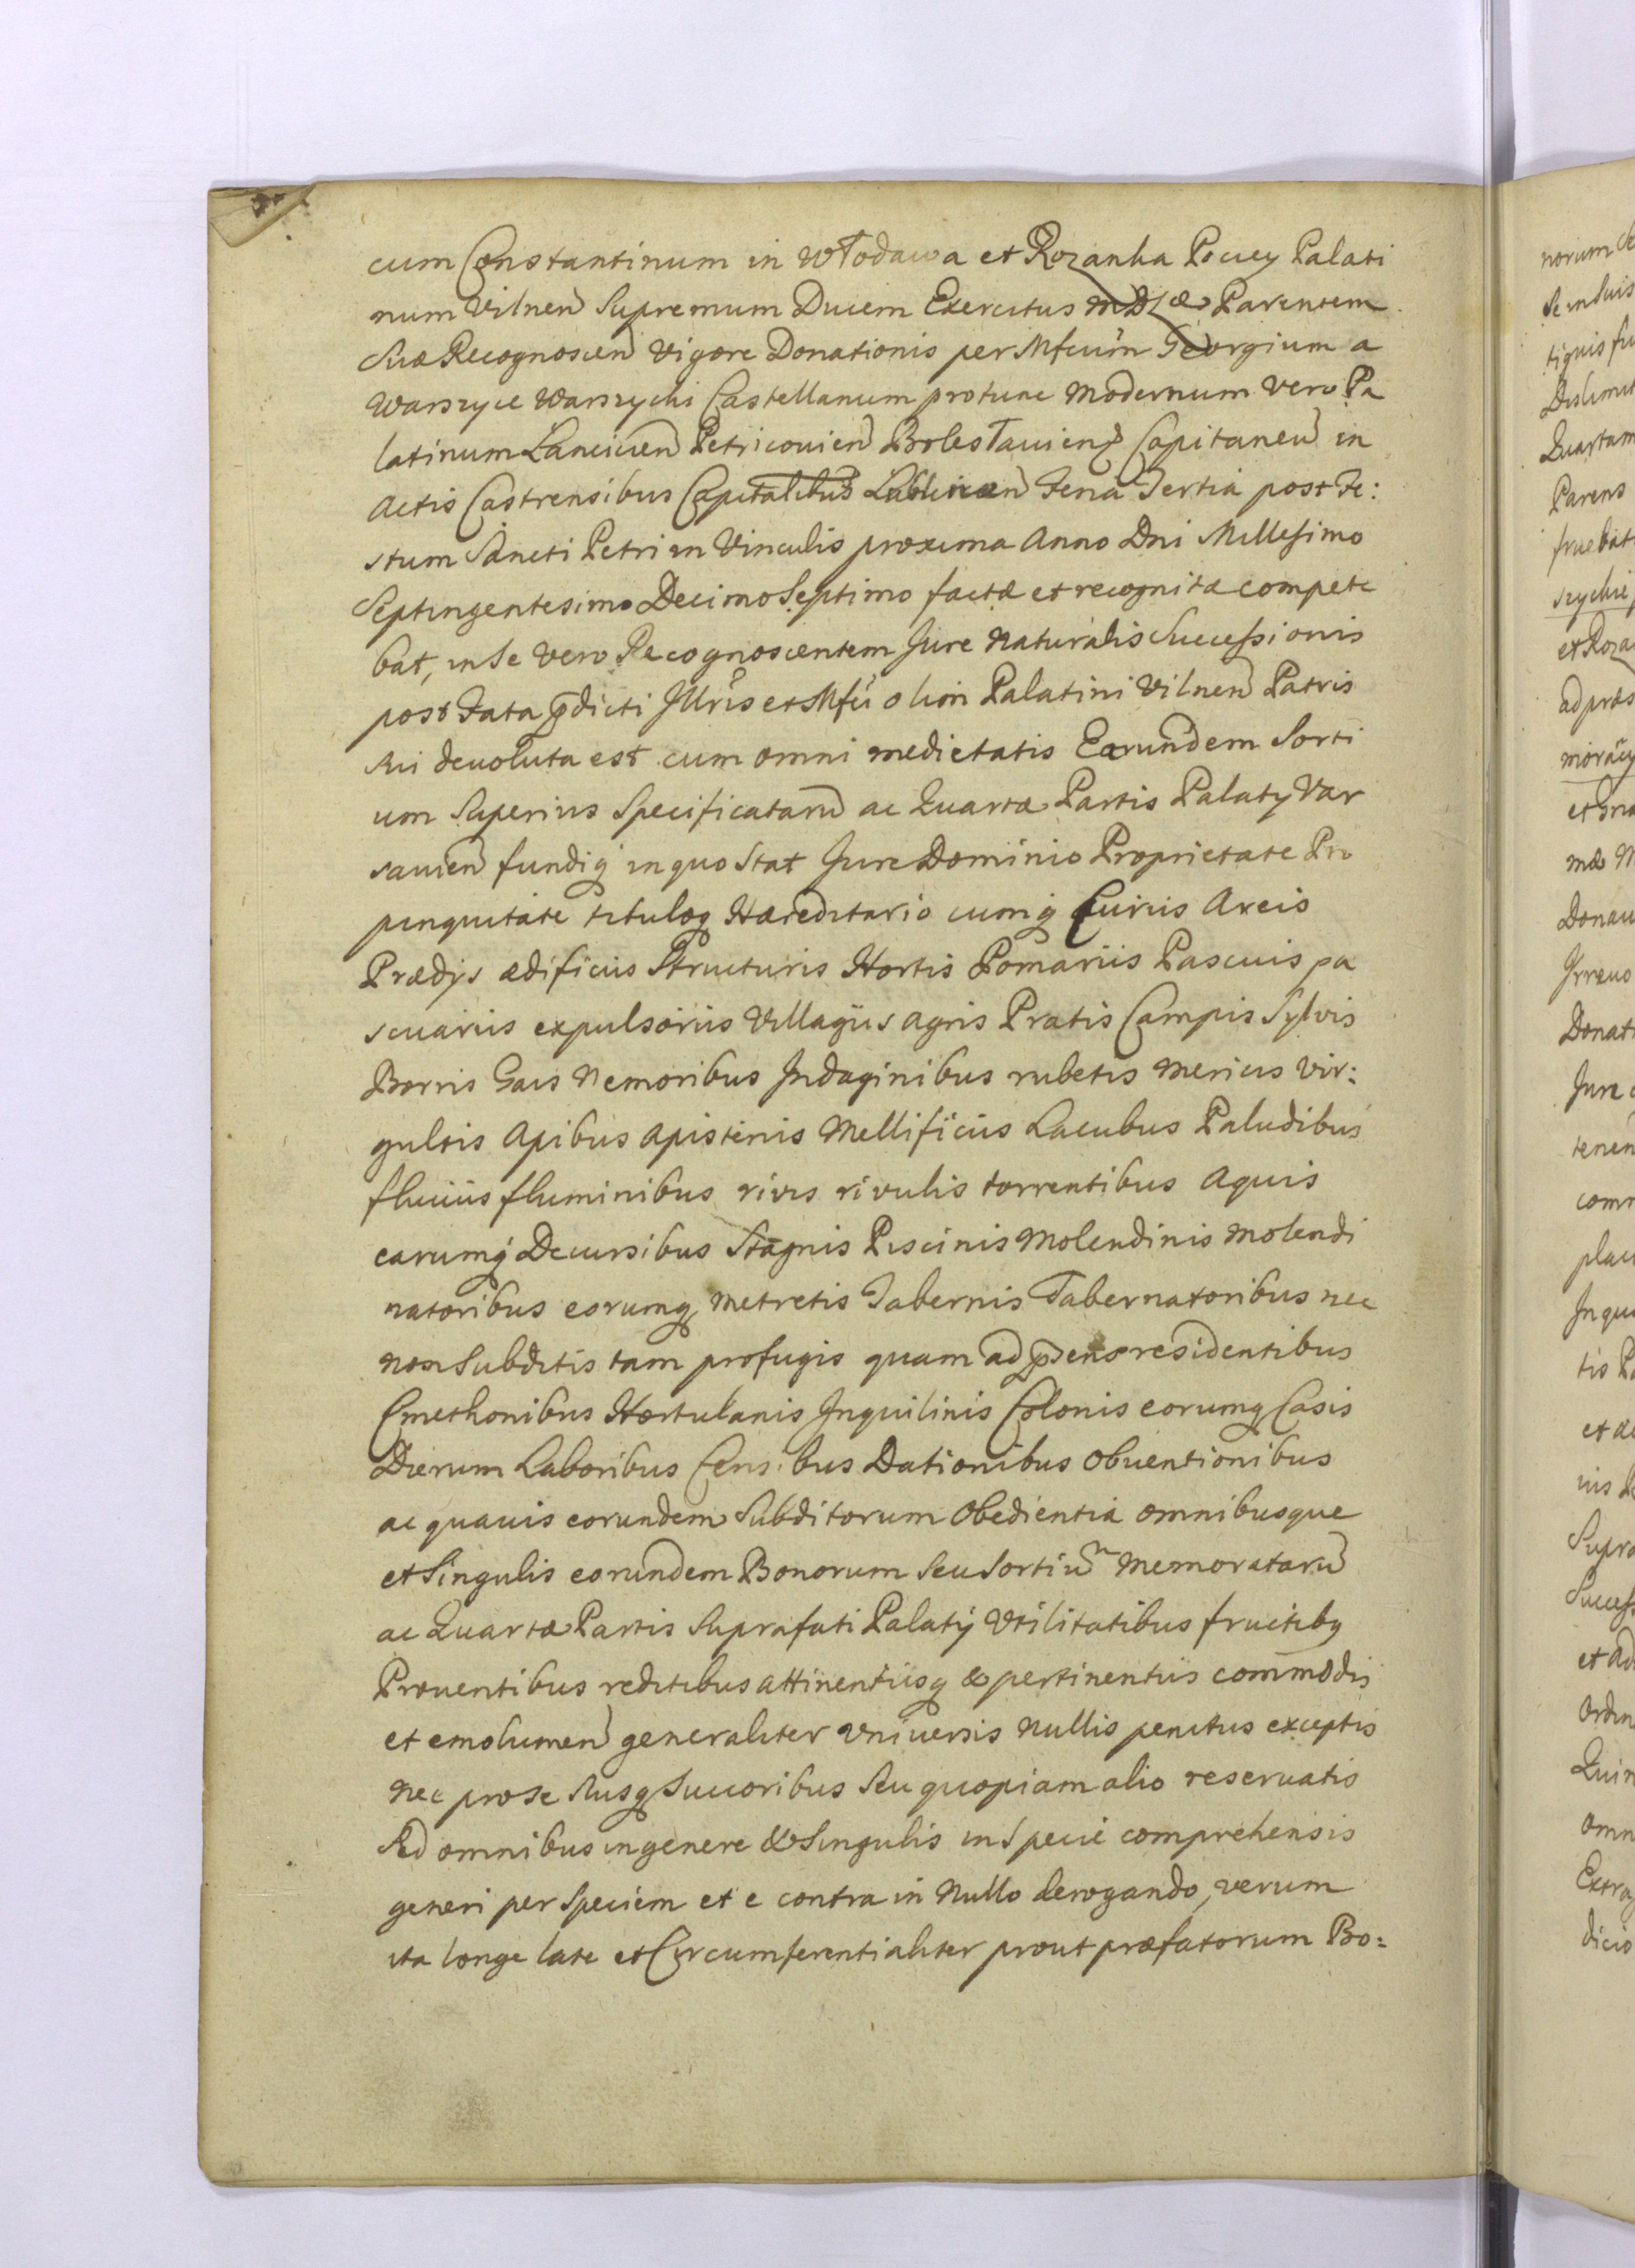 cum Constantinum in Włodawa et Rozanka Pociey Palati
num Vilnen Supremum Ducem Exercitus MDLæ Parentem
Suæ Recognoscen vigore Donationis per Mfcum Georgium a
Warszyce Warszycki Castellanum protunc modernum vero Pa
latinum Lancicien Petricovien Bolesłavien Capitaneu in
Actis Castrensibus Capitalibus Lublinen Feria Tertia post Fe:
stum Sancti Petri in Vinculis proxima Anno Dni Millesimo
Septingentesimo Decimo Septimo factæ et recognitæ compete
bat, in Se vero Recognoscentem Jure Naturalis Successionis
post Fata pdicti Jllris et Mfci olim Palatini Vilnen Patris
sui devoluta est cum omni medietatis Earundem Sorti
um Superius Specificataru ac Quartæ Partis Palaty Var
savien fundiq in quo Stat Jure Dominio Proprietate Pro
pinquitate tituloq Hæreditario cumq Curiis Areis
Prædys ædificiis Structuris Hortis Pomariis Pascuis pa
scuariis expulsoriis Villagiis agris Pratis Campis Sylvis
Borris Gais Nemoribus Jndaginibus rubetis mericis Vir:
gultis Apibus Apisteriis Mellificiis Lacubus Paludibus
fluviis fluminibus rivis rivulis torrentibus Aquis
earumq Decursibus Stagnis Piscinis Molendinis Molendi
natoribus eorumq metretis Tabernis Tabernatoribus nec
non Subditis tam profugis quam ad psens residentibus
Cmethonibus Hortulanis Jnquilinis Colonis eorumq Casis
Dierum Laboribus Censibus Dationibus Obventionibus
ac quavis eorundem Subditorum Obedientia omnibusque
et Singulis eorundem Bonorum Seu Sortiu Memorataru
ac Quartæ Partis Suprafati Palatÿ Vtilitatibus fructiby
Proventibus reditibus attinentiisq & pertinentiis commodis
et emolumen generaliter Vniversis nullis penitus exceptis
nec pro Se Suisq Succoribus Seu quopiam alio reservatis
Sed omnibus in genere & Singulis in Specie comprehensis
generi per Speciem et e contra in Nullo derogando, verum
ita longe late et Circumferentialiter prout præfatorum Bo=